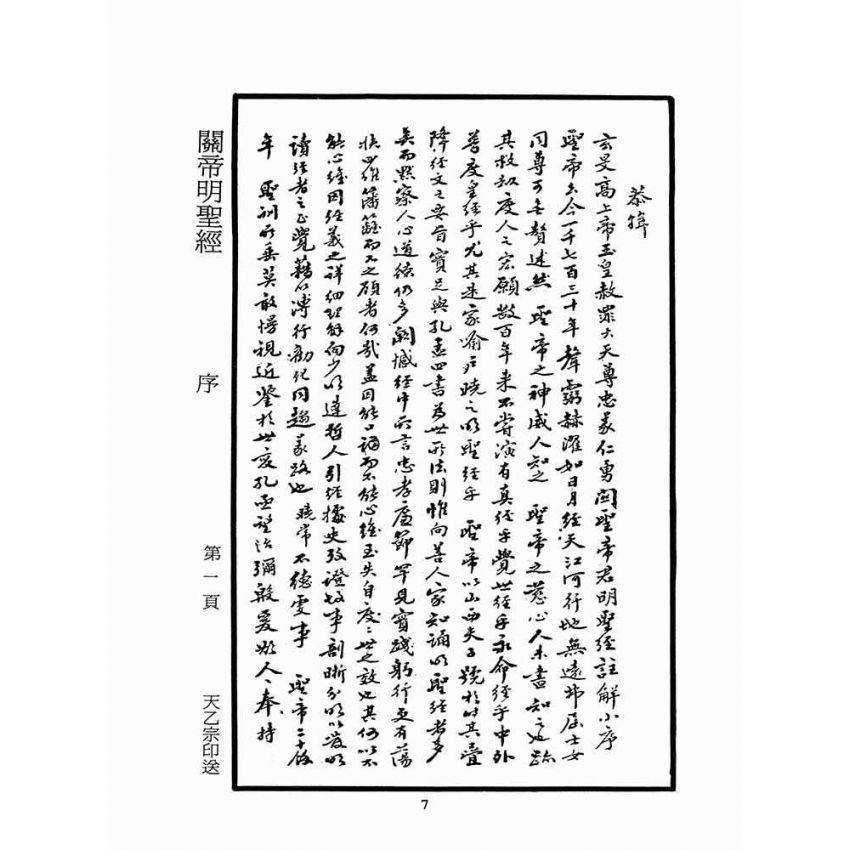 恭緝
玄旻高上帝玉皇赦罪大天尊忠義仁勇關聖帝君明聖經註解小序
聖帝去今一千七百三十年聲靈赫濯如日月經天江河行地無遠弗屆士女
同尊可無贅述然 聖帝之神威人知之 聖帝之慈心人未盡知之也
其救劫度人之宏願數百年來不嘗演有真經乎覺世經乎永命經乎中外
普度皇經乎尤其是家喻戶曉之明聖經乎 聖帝以山西夫子號於時其
降經文之要旨實足與孔孟四書為世所法則惟向善人家知誦明聖經者多
矣而默察人心道德仍多闕憾經中所言忠孝廉節罕見實踐躬行更有蕩
四維藩籬而不之顧者何哉蓋因能口誦而不能心維至失自度度世之效也其何以不
能心維因經義之詳細理解向少明達哲人引經據史攷證故事剖晰分明以啟明
讀經者之正覺藉以溥行勸化同趨義路也 曉常不德雯事 聖帝二十餘
年 聖訓所垂莫敢慢視近鑒於世變孔亟望治彌殷爰願人人奉持
關帝明聖經
序
第一頁
天乙宗印送
7